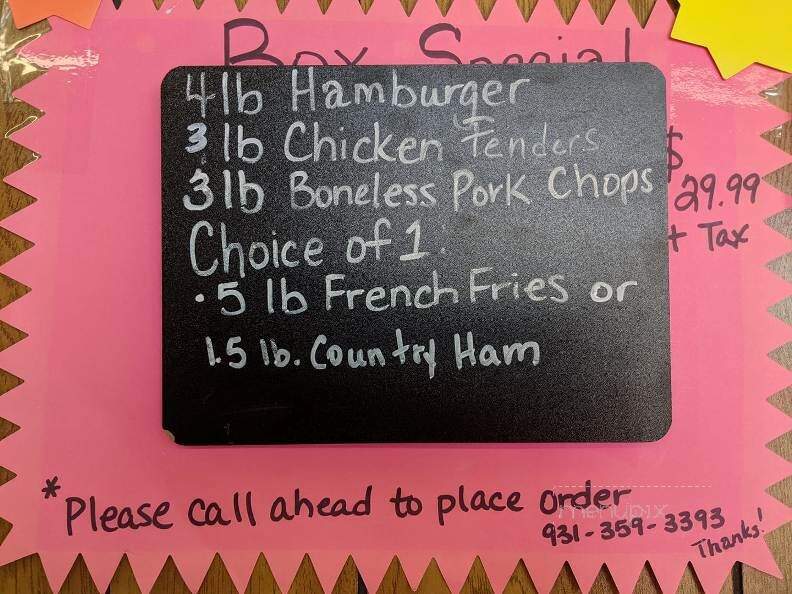 Box Special
4 lb Hamburger
3 lb Chicken Tenders
3 lb Boneless Pork Chops
$
29.99
+ Tax
Choice of 1:
• 5 lb French Fries or
1.5 lb. Country Ham
*Please call ahead to place order
menupix
931-359-3393
Thanks!